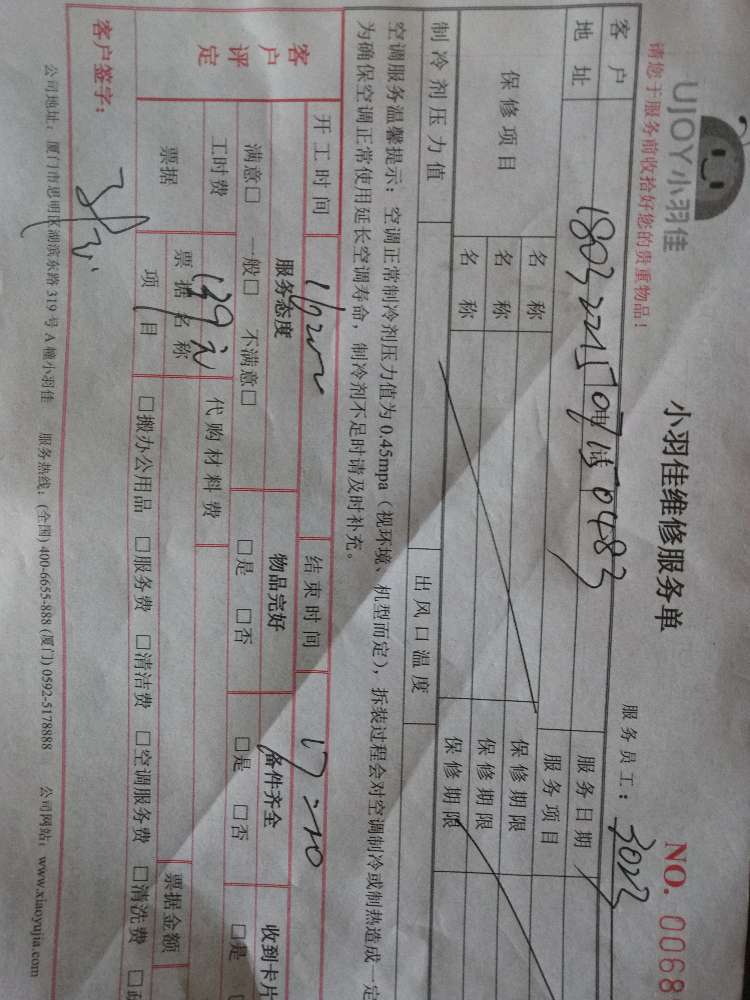 UJOY小羽佳
小羽佳维修服务单
NO. 0068
请您于服务前收拾好您的贵重物品!
服务员工: 3023
客户
电话
服务日期
地址
服务项目
保修项目 名称 保修期限
名称 保修期限
名称 保修期限
制冷剂压力值 出风口温度
空调服务温馨提示: 空调正常制冷剂压力值为 0.45mpa (视环境、机型而定), 拆装过程会对空调制冷或制热造成一定
为确保空调正常使用延长空调寿命, 制冷剂不足时请及时补充。
开工时间 结束时间 17:20
客户评定 服务态度 物品完好 备件齐全 收到卡片
满意□ 一般□ 不满意□ □是 □否 □是 □否 □是
工时费 139元 代购材料费
票据 票据名称 票据金额
项目 □搬办公用品 □服务费 □清洁费 □空调服务费 □清洗费
客户签字:
公司地址: 厦门市思明区湖滨东路 319 号 A 幢小羽佳 服务热线: (全国) 400-6655-888 (厦门) 0592-5178888 公司网站: www.xiaoyujia.com